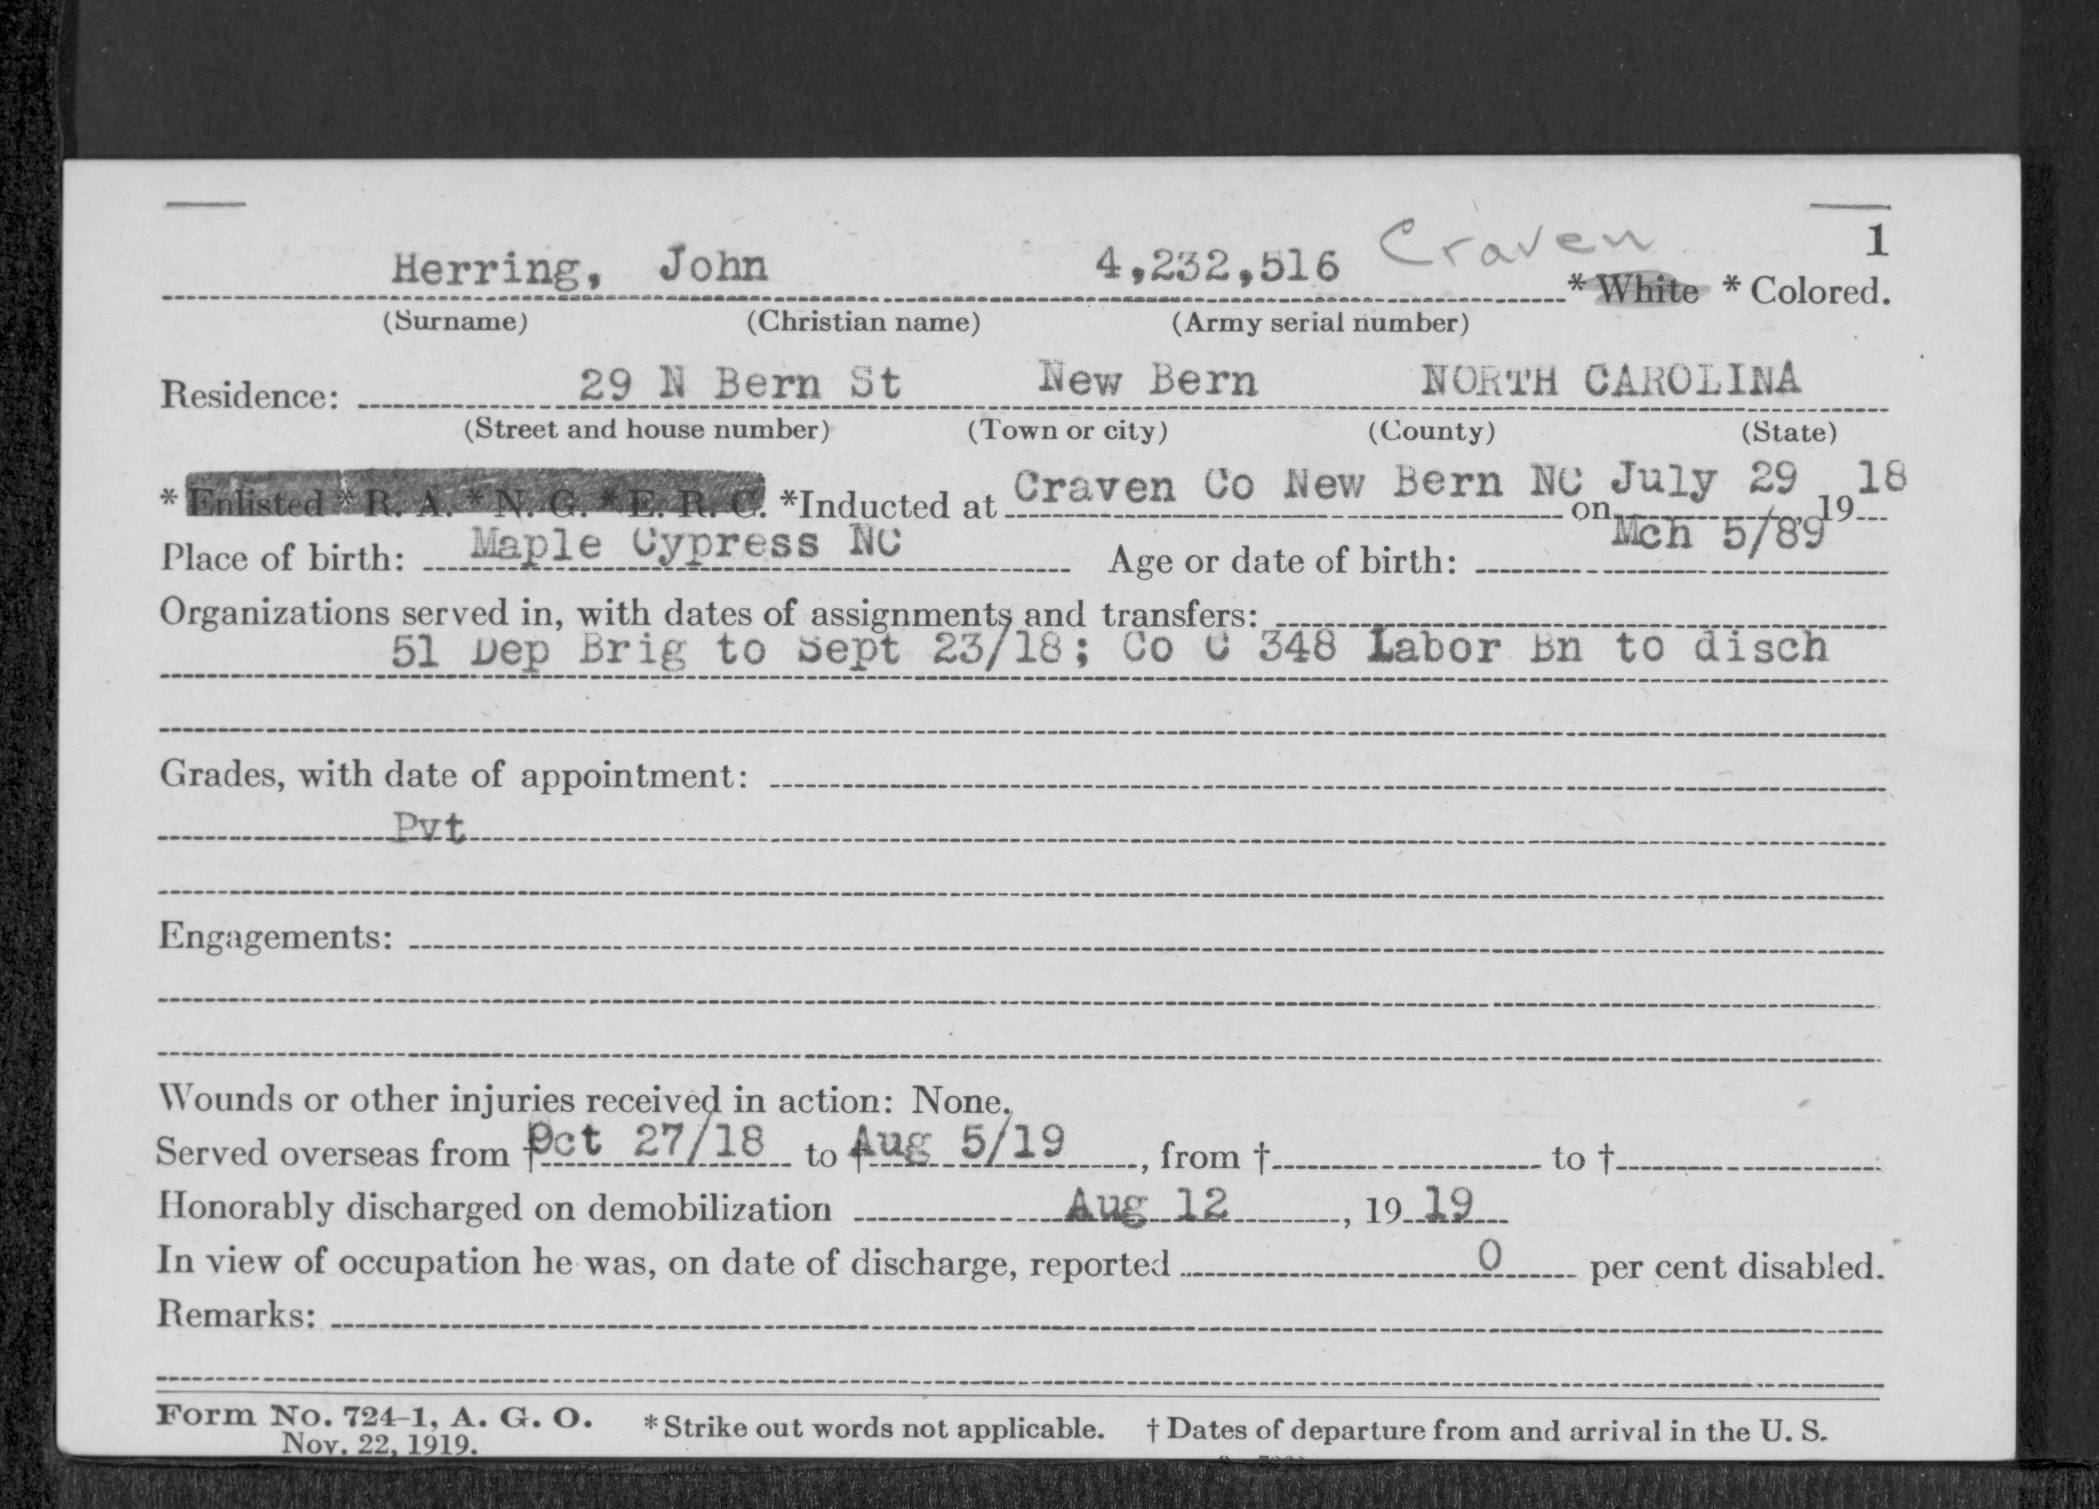 Craven 1
Herring, John 4,232,516 * White * Colored.
(Surname) (Christian name) (Army serial number)
Residence: 29 N Bern St New Bern NORTH CAROLINA
(Street and house number) (Town or city) (County) (State)
* Enlisted * R. A. * N. G. * E. R. C. *Inducted at Craven Co New Bern NC on July 29, 1918
Place of birth: Maple Cypress NC Age or date of birth: Mch 5/89
Organizations served in, with dates of assignments and transfers:
51 Dep Brig to Sept 23/18; Co C 348 Labor Bn to disch
Grades, with date of appointment:
Pvt
Engagements:
Wounds or other injuries received in action: None.
Served overseas from † Oct 27/18 to † Aug 5/19, from † to †
Honorably discharged on demobilization Aug 12, 1919
In view of occupation he was, on date of discharge, reported 0 per cent disabled.
Remarks:
Form No. 724-1, A. G. O. * Strike out words not applicable. † Dates of departure from and arrival in the U. S.
Nov. 22, 1919.